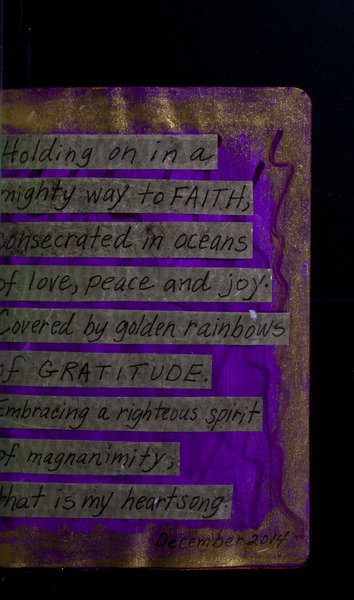 Holding on in a
mighty way to FAITH,
consecrated in oceans
of love, peace and joy.
Covered by golden rainbows
of GRATITUDE.
Embracing a righteous spirit
of magnanimity,
that is my heartsong.
December 2014